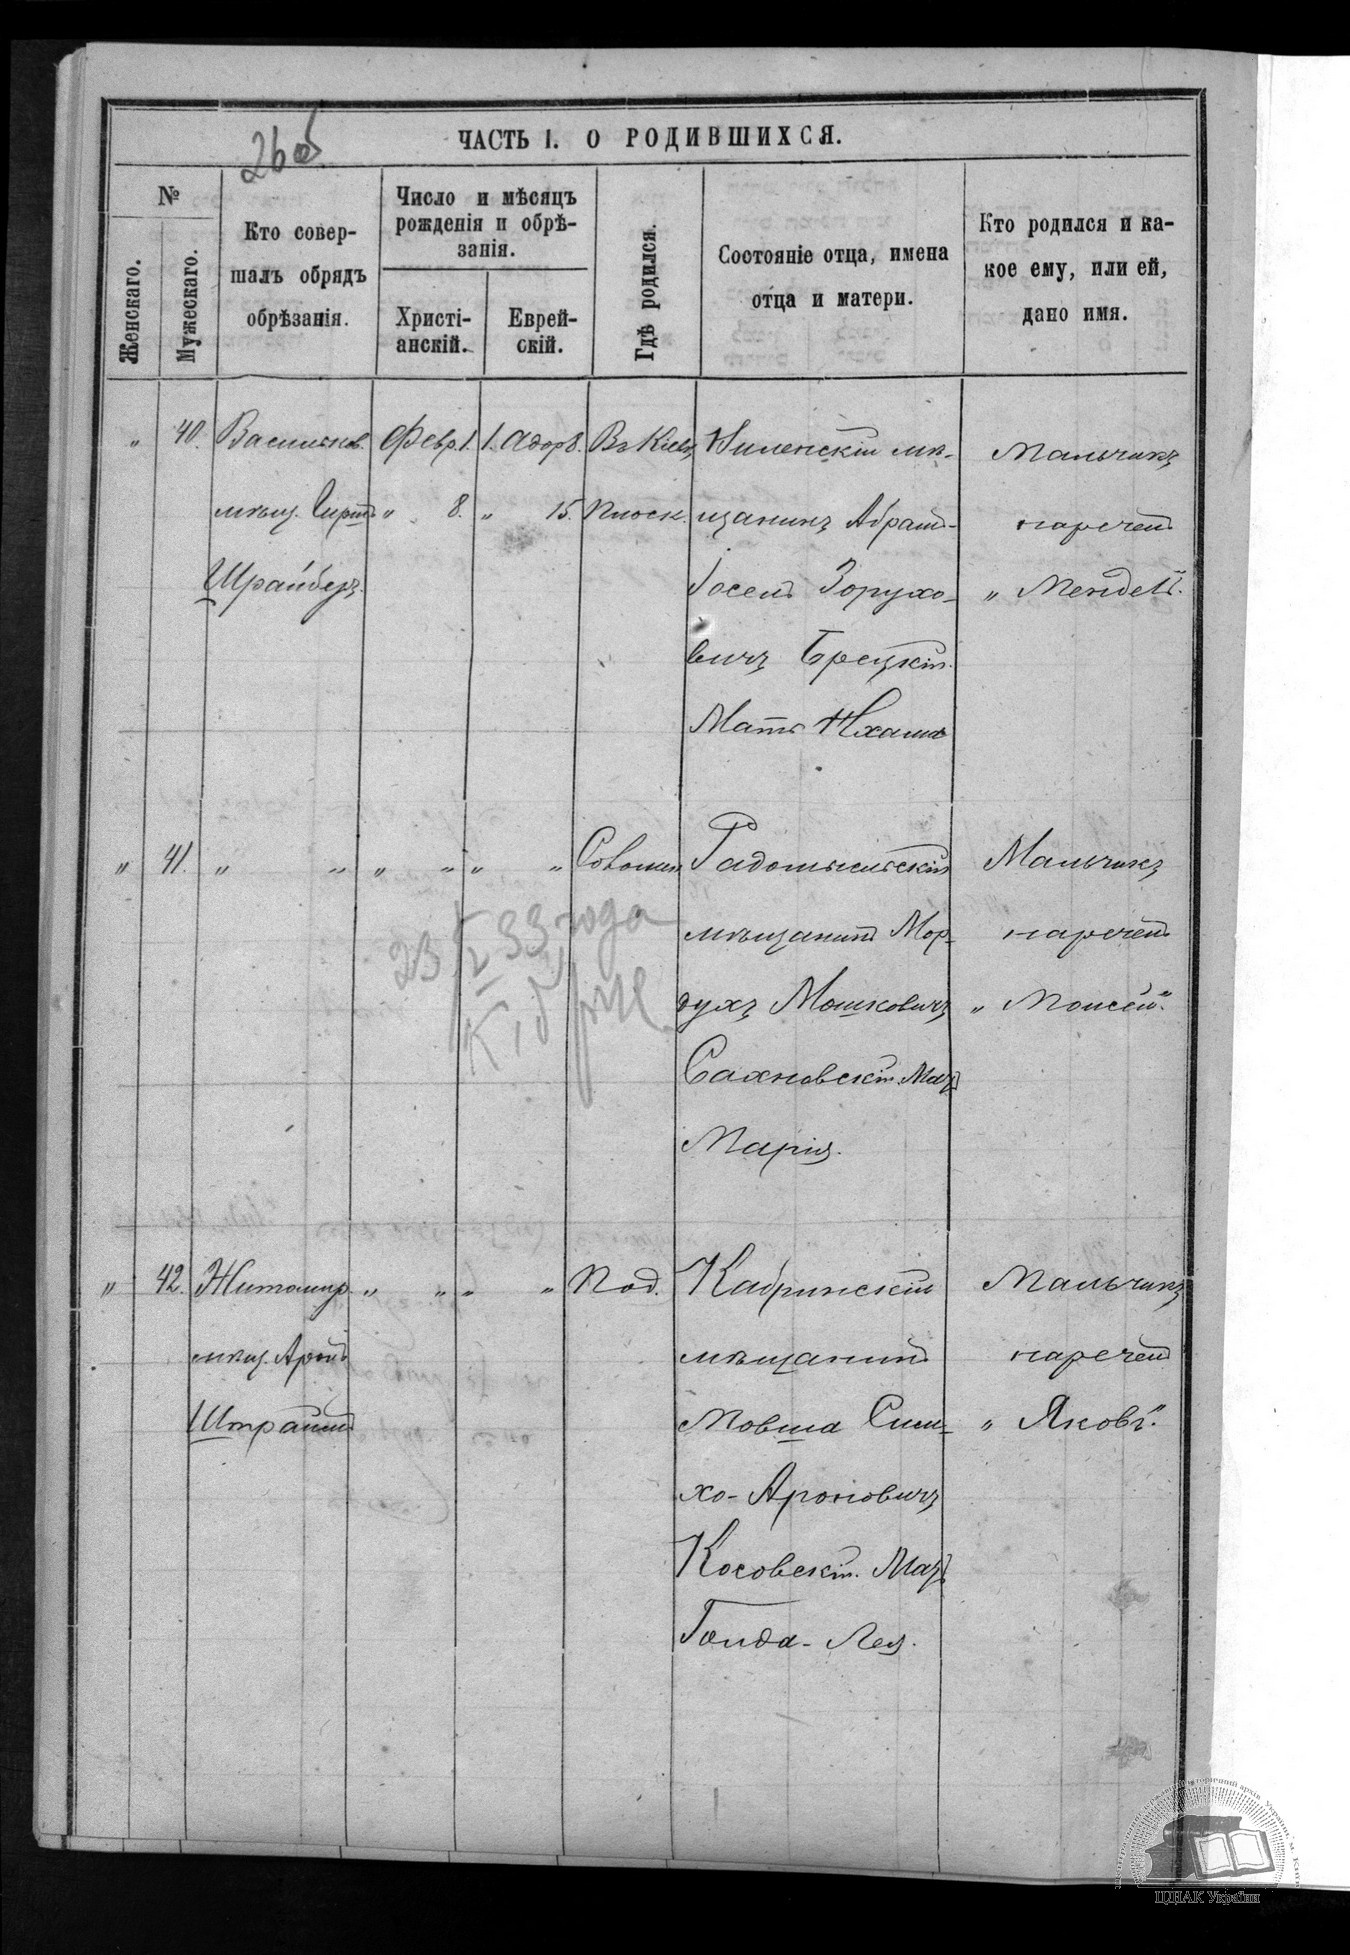 26 об
ЧАСТЬ I. О РОДИВШИХСЯ.
№
Женскаго.
Мужескаго.
Кто совер-
шалъ обрядъ
обрѣзанія.
Число и мѣсяцъ
рожденія и обрѣ-
занія.
Христі-
анскій.
Еврей-
скій.
Гдѣ родился.
Состояніе отца, имена
отца и матери.
Кто родился и ка-
кое ему, или ей,
дано имя.
„ 40. Васильков.
мѣщ.
Шрайберъ.
Февр. 1.
„ 8.
1. Адор 8.
„ 15.
Въ Кіевѣ,
Плоск.
Виленскій мѣ-
щанинъ Абрам-
Іосель Зорухо-
вичъ Брецкій.
Мать Нхама
Мальчикъ
нареченъ
„ Мендель".
„ 41. „ „ „ „ „ „
Соломен.
Радомысльскій
мѣщанинъ Мор-
духъ Мошковичъ
Сахновскій. Мать
Марія.
Мальчикъ
нареченъ
„ Моисей".
23/V 33 года
„ 42. Житомир.
мѣщ. Аронъ
„ „ „ „
Под.
Кабринскій
мѣщанинъ
Мовша Сим-
хо-Ароновичъ
Косовскій. Мать
Голда-Лея.
Мальчикъ
нареченъ
„ Яковъ".
ЦДІАК України